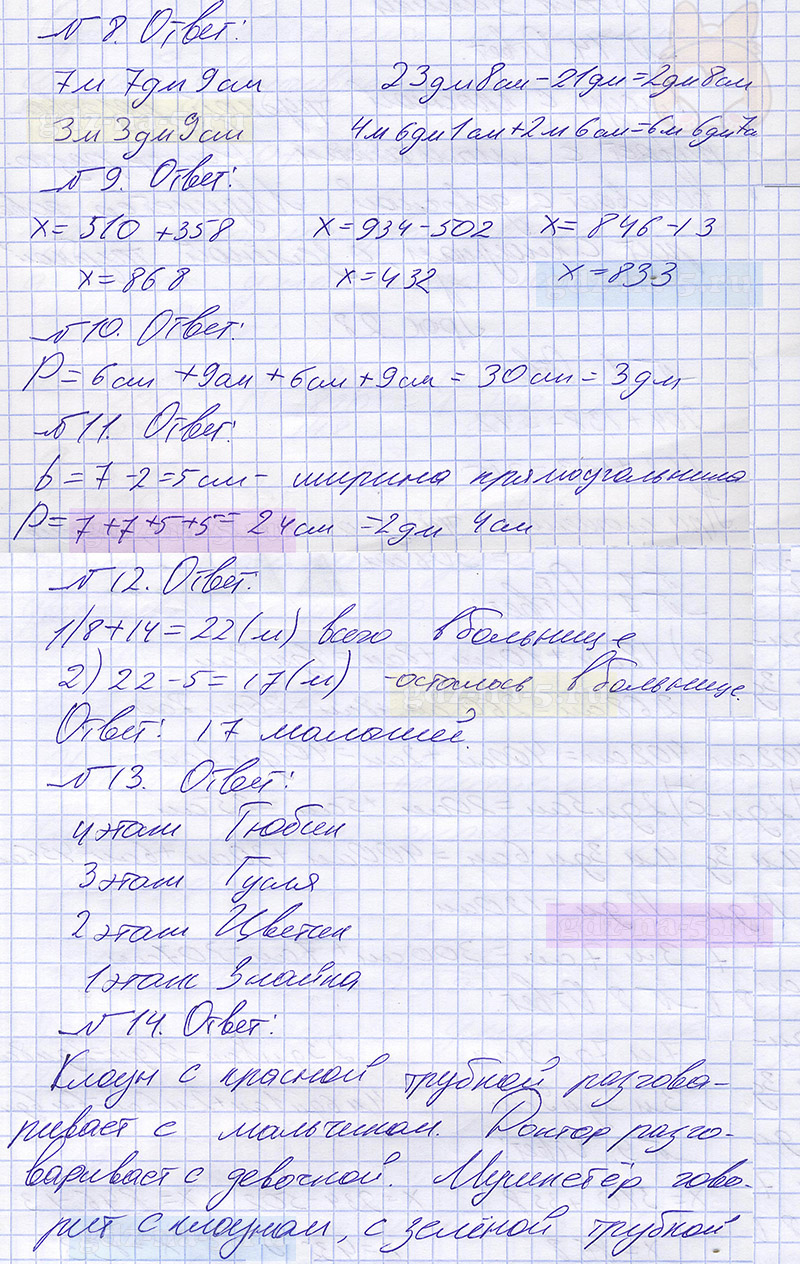 № 8. Ответ:
7м 7дм 9см 23дм 8см - 21дм = 2дм 8см
3м 3дм 9см 4м 6дм 1см + 2м 6см = 6м 6дм 7с
№ 9. Ответ:
x = 510 + 358 x = 934 - 502 x = 846 - 13
x = 868 x = 432 x = 833
№ 10. Ответ:
P = 6см + 9см + 6см + 9см = 30см = 3дм
№ 11. Ответ:
b = 7 - 2 = 5см - ширина прямоугольника
P = 7 + 7 + 5 + 5 = 24см = 2дм 4см
№ 12. Ответ:
1) 8 + 14 = 22 (м) всего в больнице
2) 22 - 5 = 17 (м) - осталось в больнице.
Ответ: 17 малышей.
№ 13. Ответ:
4 этаж Тюбик
3 этаж Гусля
2 этаж Цветик
1 этаж Знайка
№ 14. Ответ:
Клоун с красной трубкой разгова-
ривает с мальчиком. Доктор разго-
варивает с девочкой. Мушкетёр гово-
рит с клоуном, с зелёной трубкой